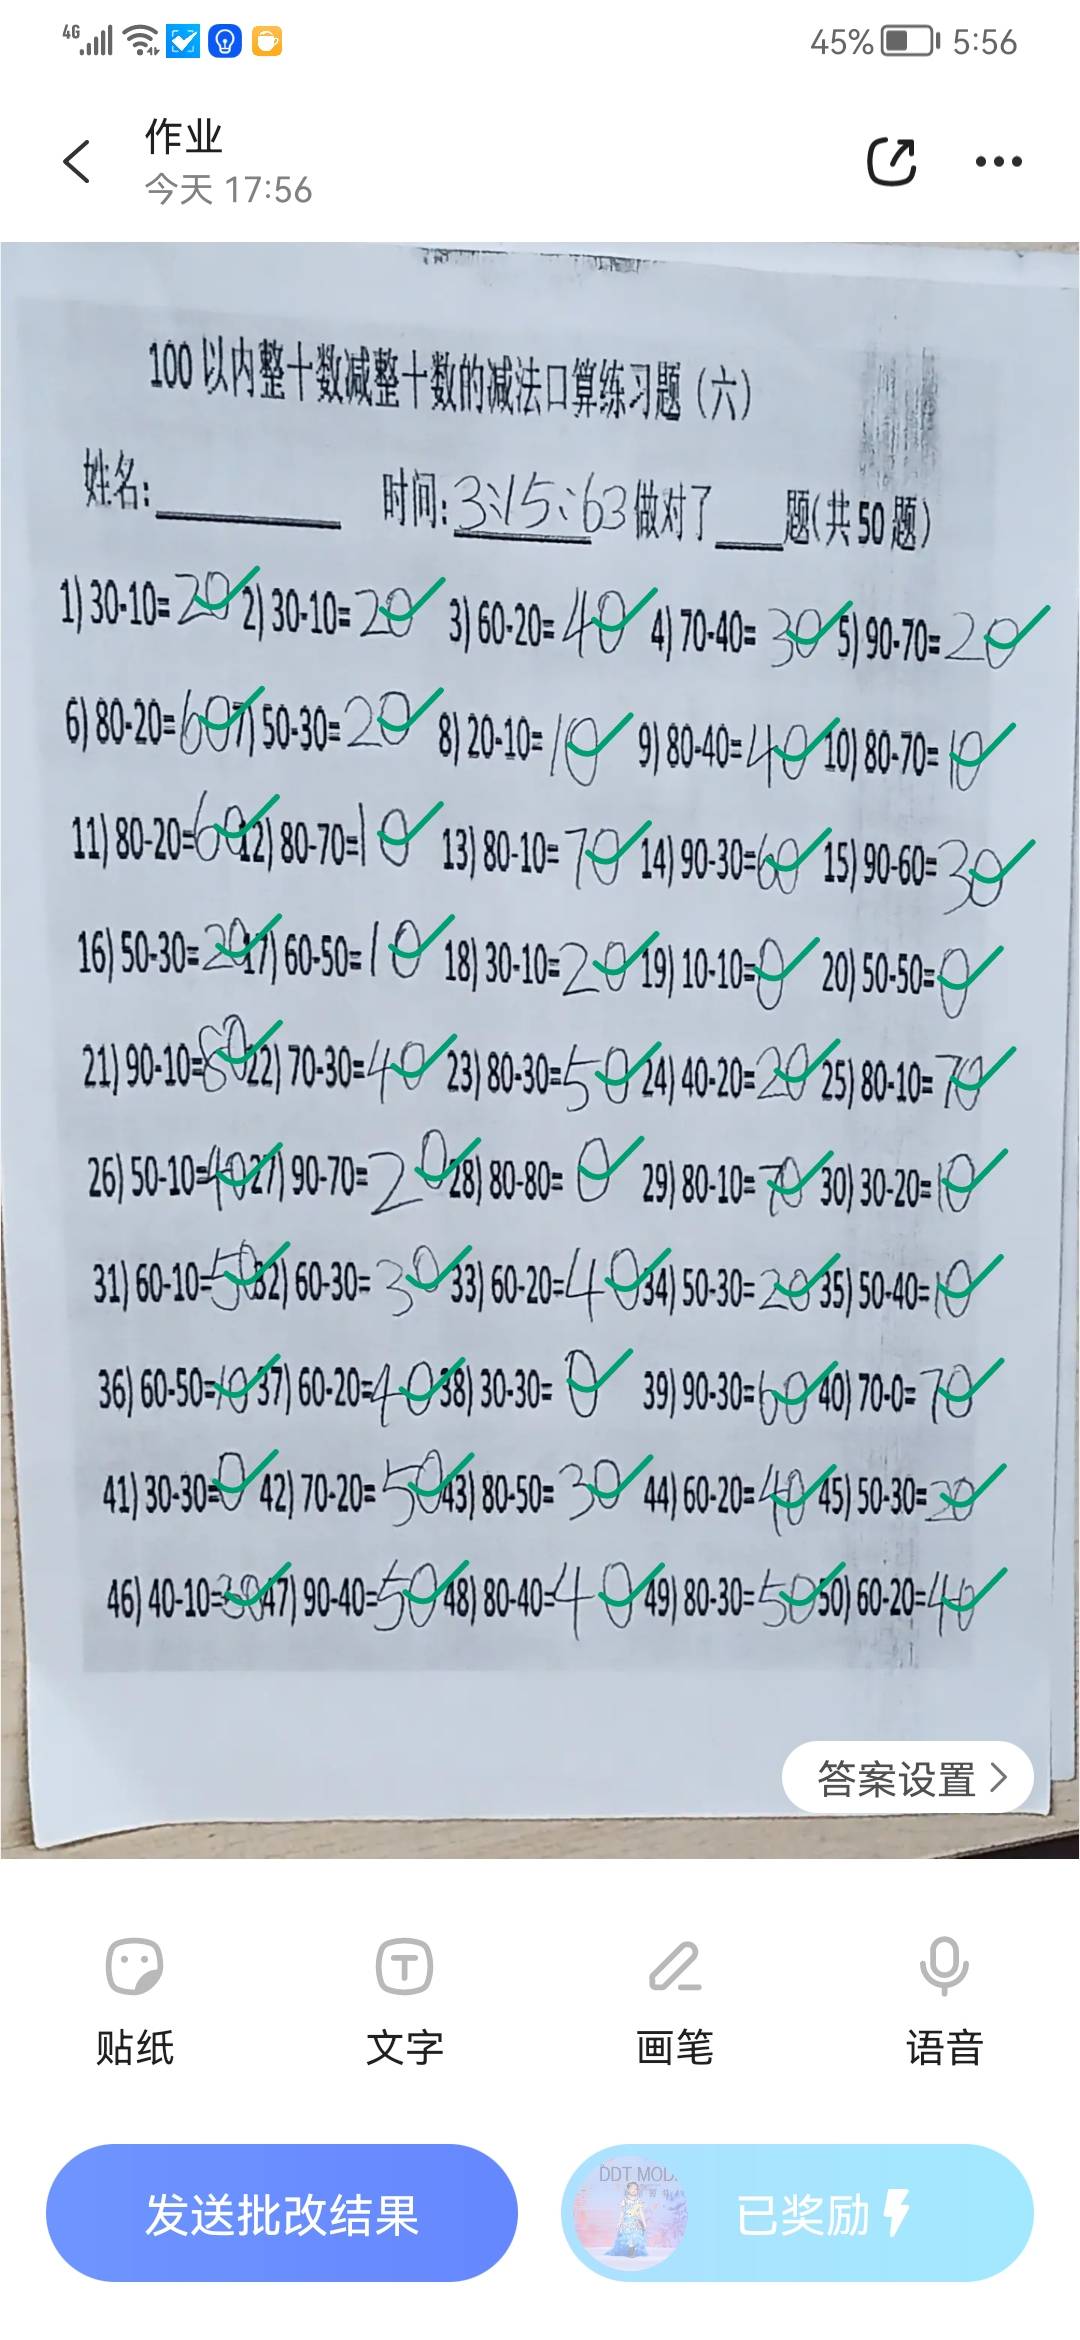 4G 45% 5:56
作业
今天 17:56
100 以内整十数减整十数的减法口算练习题（六）
姓名：________ 时间：3:15:63 做对了____题（共 50 题）
1) 30-10=20 2) 30-10=20 3) 60-20=40 4) 70-40=30 5) 90-70=20
6) 80-20=60 7) 50-30=20 8) 20-10=10 9) 80-40=40 10) 80-70=10
11) 80-20=60 12) 80-70=10 13) 80-10=70 14) 90-30=60 15) 90-60=30
16) 50-30=20 17) 60-50=10 18) 30-10=20 19) 10-10=0 20) 50-50=0
21) 90-10=80 22) 70-30=40 23) 80-30=50 24) 40-20=20 25) 80-10=70
26) 50-10=40 27) 90-70=20 28) 80-80=0 29) 80-10=70 30) 30-20=10
31) 60-10=50 32) 60-30=30 33) 60-20=40 34) 50-30=20 35) 50-40=10
36) 60-50=10 37) 60-20=40 38) 30-30=0 39) 90-30=60 40) 70-0=70
41) 30-30=0 42) 70-20=50 43) 80-50=30 44) 60-20=40 45) 50-30=20
46) 40-10=30 47) 90-40=50 48) 80-40=40 49) 80-30=50 50) 60-20=40
答案设置
贴纸 文字 画笔 语音
发送批改结果 DDT MOD 已奖励